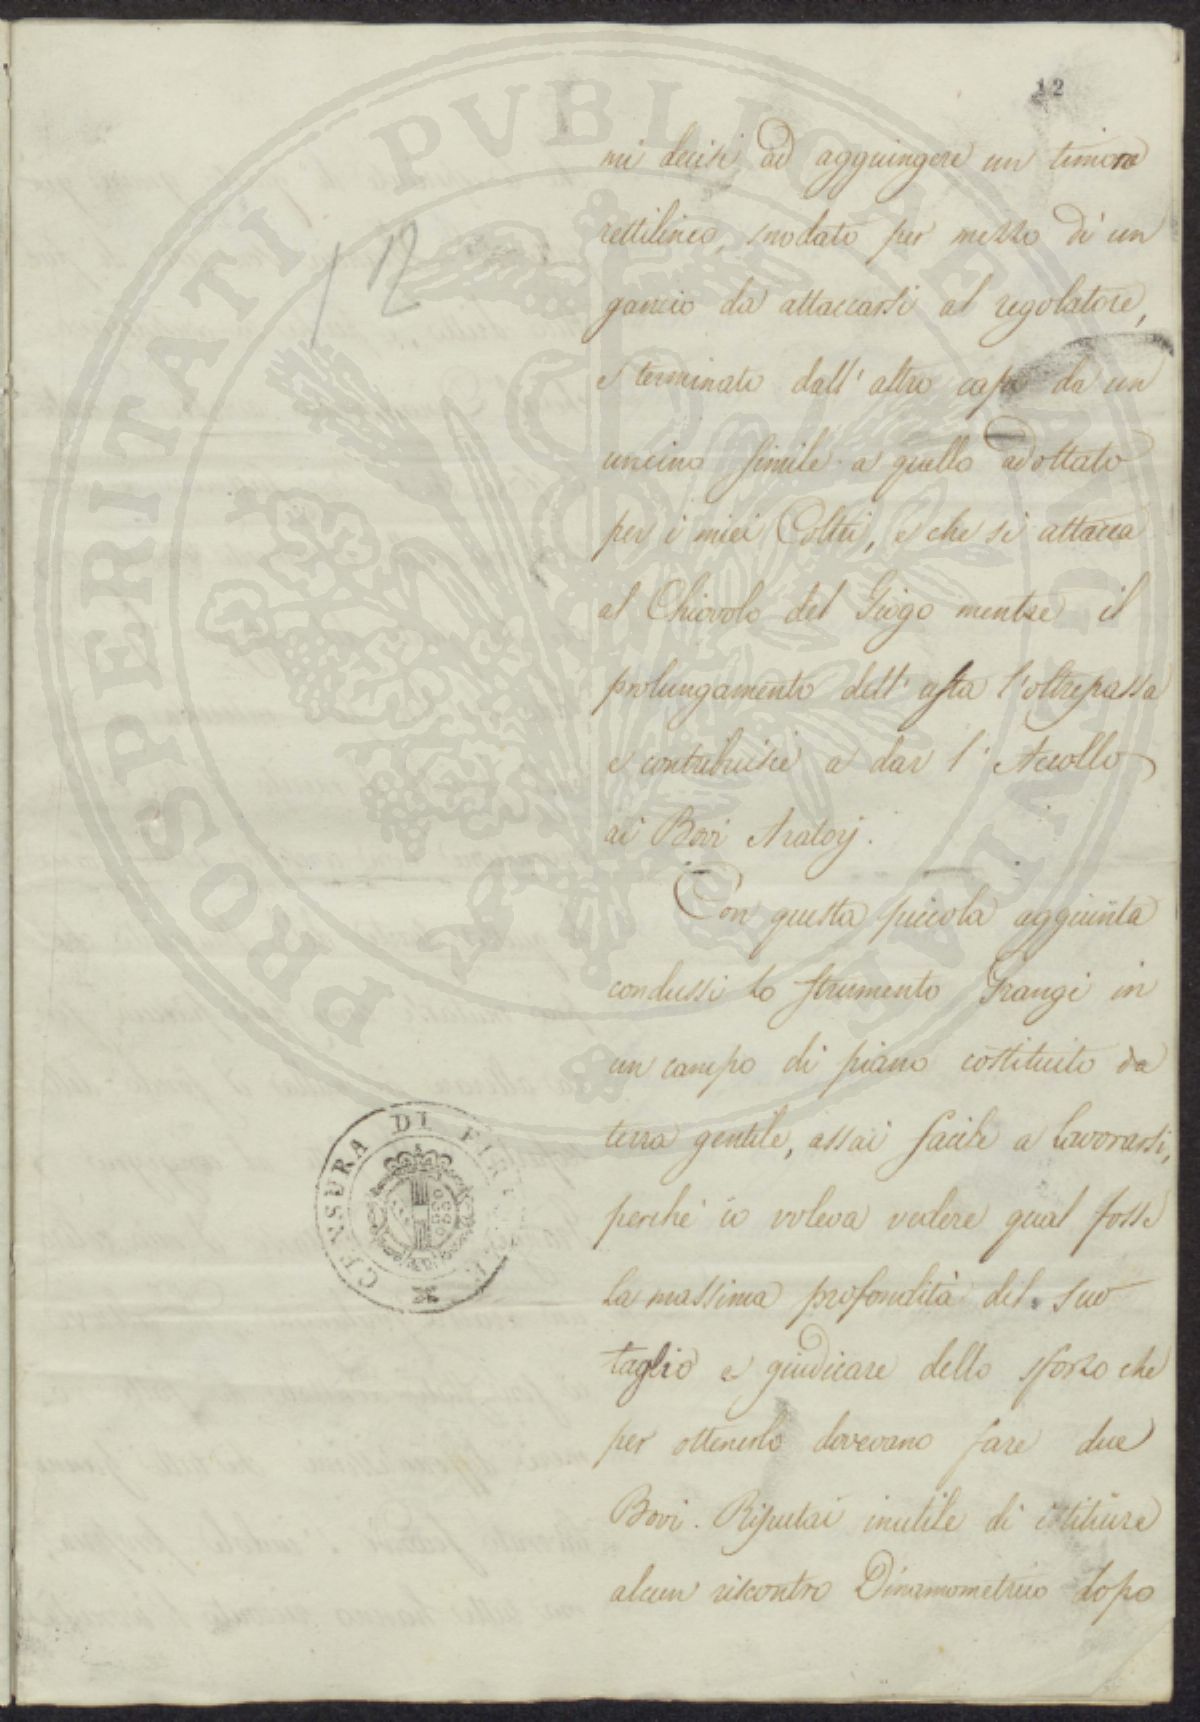 12
12
mi decisi ad aggiungere un timone
rettilineo, snodato per mezzo di un
gancio da attaccarsi al regolatore,
e terminato dall' altro capo da un
uncino simile a quello adottato
per i miei Coltri, e che si attacca
al Chiovolo del Giogo mentre il
prolungamento dell' asta l'oltrepassa
e contribuisce a dar l' Accollo
ai Bovi Aratorj.
Con questa piccola aggiunta
condussi lo strumento Grangè in
un campo di piano costituito da
terra gentile, assai facile a lavorarsi,
perchè io voleva vedere qual fosse
la massima profondità del suo
taglio e giudicare dello sforzo che
per ottenerlo dovevano fare due
Bovi. Riputai inutile di istituire
alcun riscontro Dinamometrico dopo
CENSURA DI FIRENZE
PROSPERITATI PVBLICAE AVGENDAE